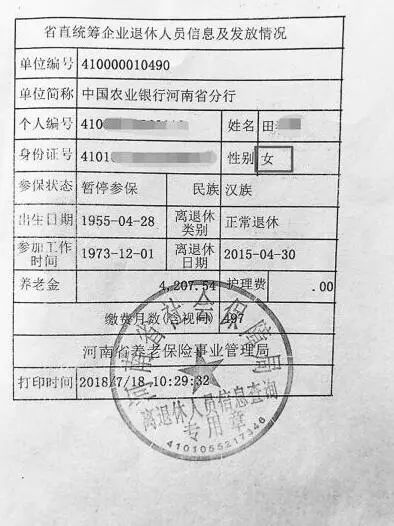 省直统筹企业退休人员信息及发放情况
单位编号 410000010490
单位简称 中国农业银行河南省分行
个人编号 410 姓名 田
身份证号 4101 性别 女
参保状态 暂停参保 民族 汉族
出生日期 1955-04-28 离退休类别 正常退休
参加工作时间 1973-12-01 离退休日期 2015-04-30
养老金 4,207.54 护理费 .00
缴费月数(含视同) 497
河南省养老保险事业管理局
打印时间 2018/7/18 10:29:32
河南省社会保障局
离退休人员信息查询
专用章
4101055217346